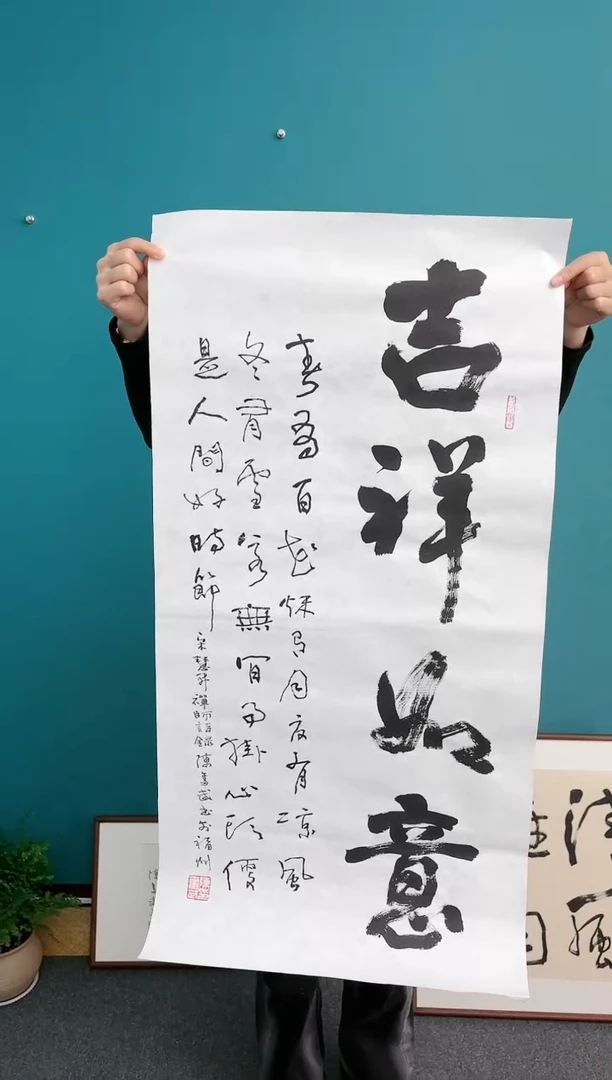 吉祥如意
春有百花秋有月夏有凉風
冬有雪若無閒事掛心頭便
是人間好時節 宋慧開禪師語錄 陳 書於福州